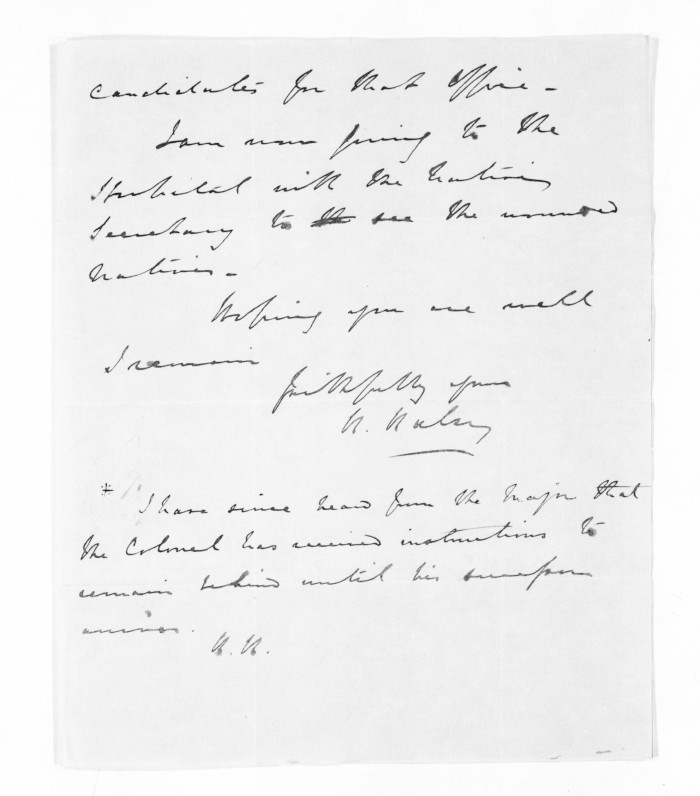 candidates for that office –
I am now going to the
Hospital with the Native
Secretary to see the wounded
Natives –
Hoping you are well
I remain
faithfully yours
H. Halse
* I have since heard from the Major that
the Colonel has received instructions to
remain behind until his successor
arrives.
H.H.